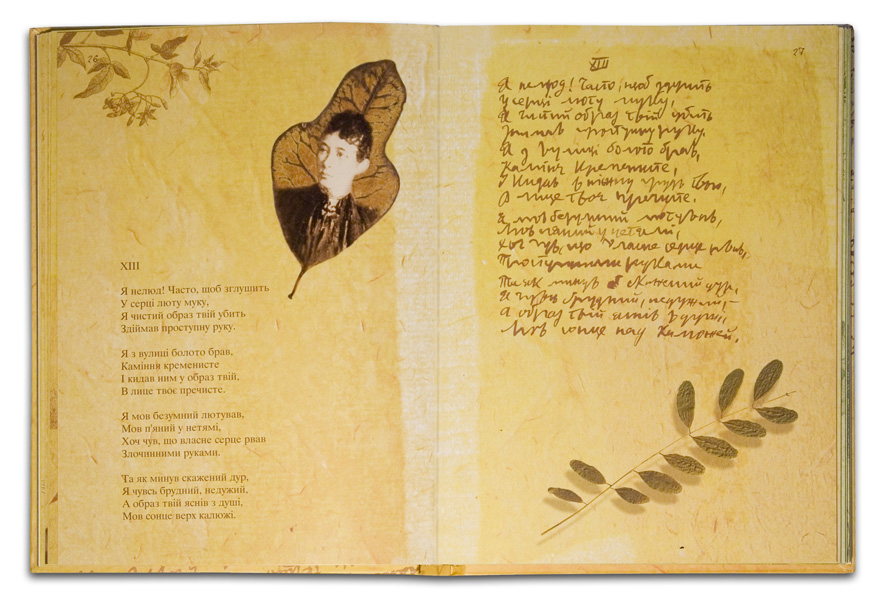 26
XIII
Я нелюд! Часто, щоб зглушить
У серці люту муку,
Я чистий образ твій убить
Здіймав проступну руку.
Я з вулиці болото брав,
Каміння кременисте
І кидав ним у образ твій,
В лице твоє пречисте.
Я мов безумний лютував,
Мов п'яний у нетямі,
Хоч чув, що власне серце рвав
Злочинними руками.
Та як минув скажений дур,
Я чувсь брудний, недужий,
А образ твій яснів з душі,
Мов сонце верх калюжі.
27
XIII
Я нелюд! Часто, щоб
У серці люту муку,
Я чистий образ твій убить
Здіймав проступну руку.
Я з вулиці болото брав,
Каміння кременисте,
І кидав в ніжну грудь твою,
В лице твоє пречисте.
Я мов безумний лютував,
Мов пяний у нетямі,
Хоч чув, що власне серце рвав,
Проступними руками
Та як минув скажений дур,
Я чувсь брудний, недужий —
А образ твій яснів в душі,
Мов сонце над калюжей.